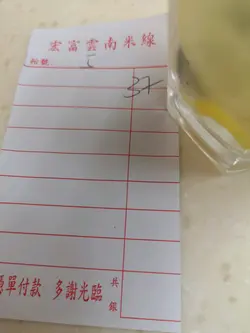 宏富雲南米線
枱號 5
37
憑單付款 多謝光臨
共銀